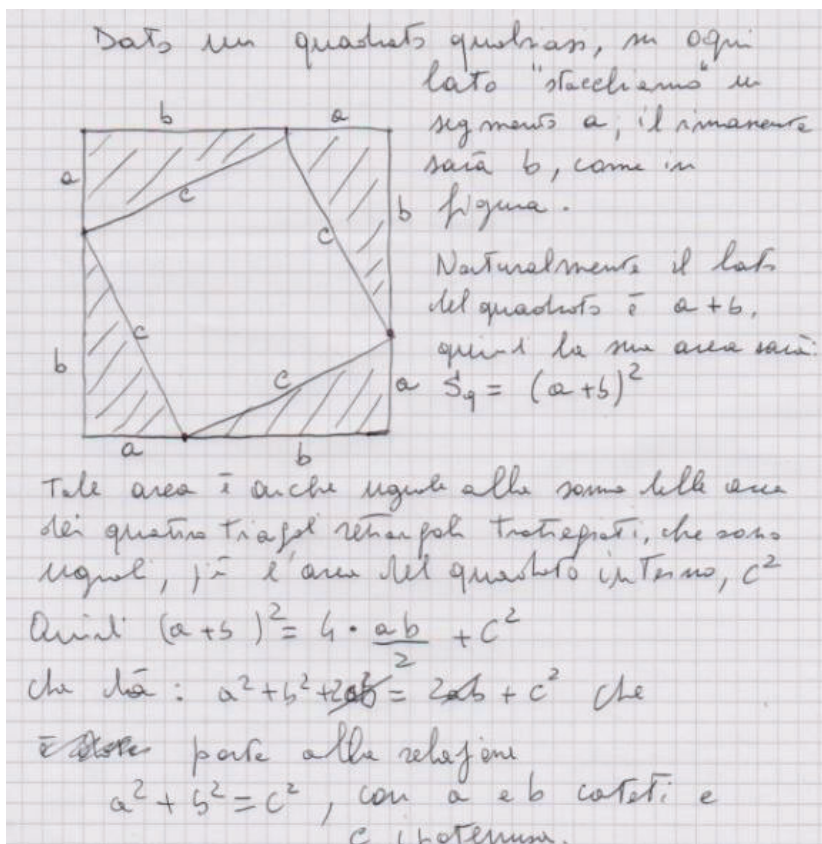 Dato un quadrato qualsiasi, su ogni
lato "stacchiamo" un
segmento a, il rimanente
sarà b, come in
figura.
b a
a c b
c
Naturalmente il lato
del quadrato è a+b,
quindi la sua area sarà:
Sq = (a+b)²
c
b c a
a b
Tale area è anche uguale alla somma delle aree
dei quattro triangoli rettangoli tratteggiati, che sono
uguali, più l'area del quadrato interno, c²
Quindi (a+b)² = 4 · ab/2 + c²
che dà: a²+b²+2ab = 2ab + c² che
porta alla relazione
a² + b² = c², con a e b cateti e
c ipotenusa.